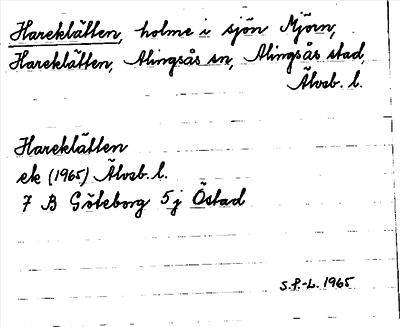 Hareklätten, holme i sjön Mjörn,
Hareklätten, Alingsås sn, Alingsås stad,
Älvsb. l.
Hareklätten
ek (1965) Älvsb. l.
7 B Göteborg 5j Östad
S.P.-L. 1965